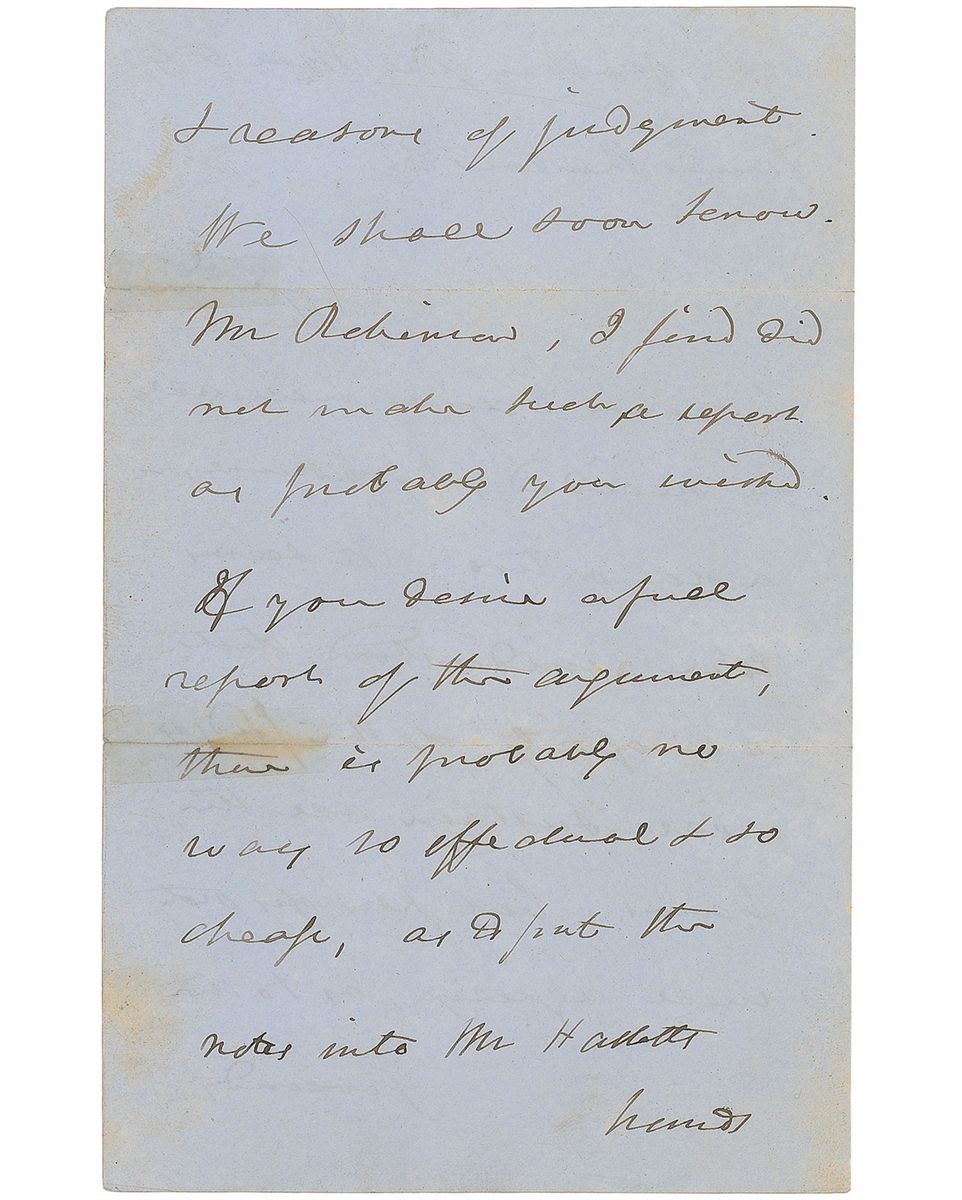 & reasons of judgment.
We shall soon know.
Mr Robinson, I find did
not make such a report
as probably you wished.
If you desire a full
report of the argument,
there is probably no
way so effectual & so
cheap, as to put the
notes into Mr Halletts
hands